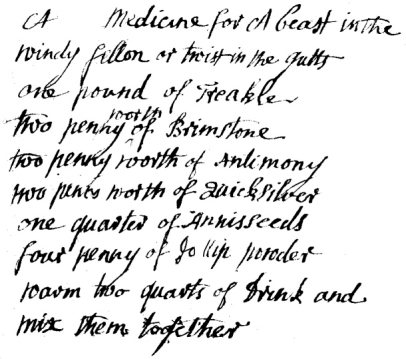 A Medicine for A beast in the
windy fillon or twist in the gutts
one pound of Treakle
two penny worth of Brimstone
two penny worth of Antimony
two penny worth of Quicksilver
one quarter of Annisseeds
four penny of Jollip powder
warm two quarts of Drink and
mix them together